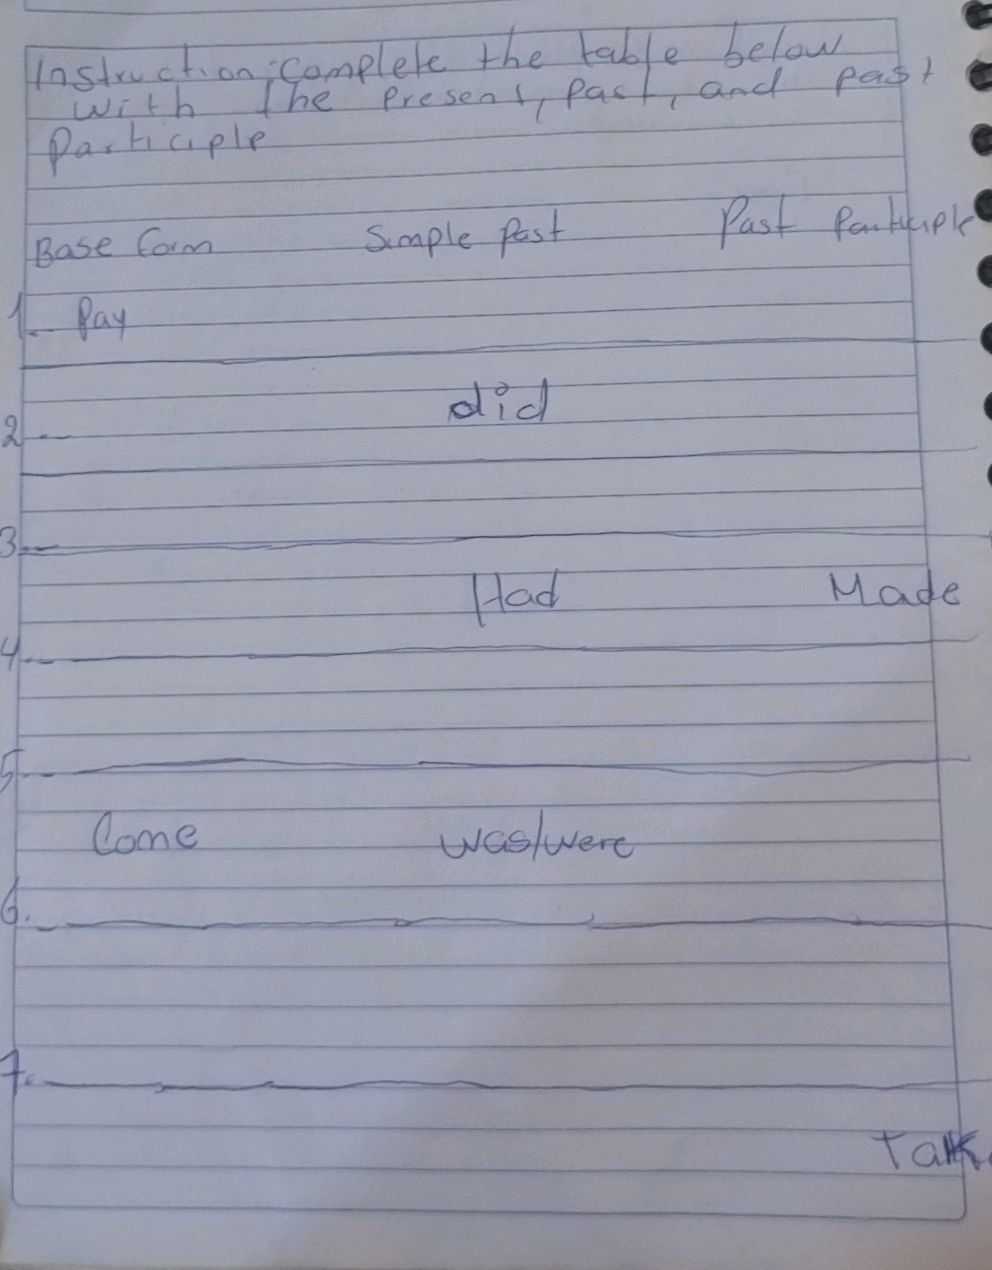 Instruction: Complete the table below
with the present, past, and past
Participle
Base form Simple Past Past Participle
1. Pay
did
2
3
Had Made
4
5
Come was/were
6.
7.
Talk